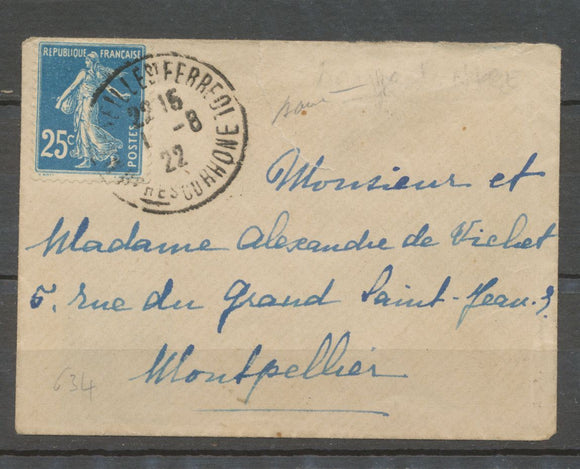 REPUBLIQUE FRANÇAISE
25c
POSTES
ILLE ST FERREOL
22 15
1 -8
22
BCES DU RHONE
Monsieur et
Madame Alexandre de Vichet
5, rue du Grand Saint-Jean.
Montpellier
634